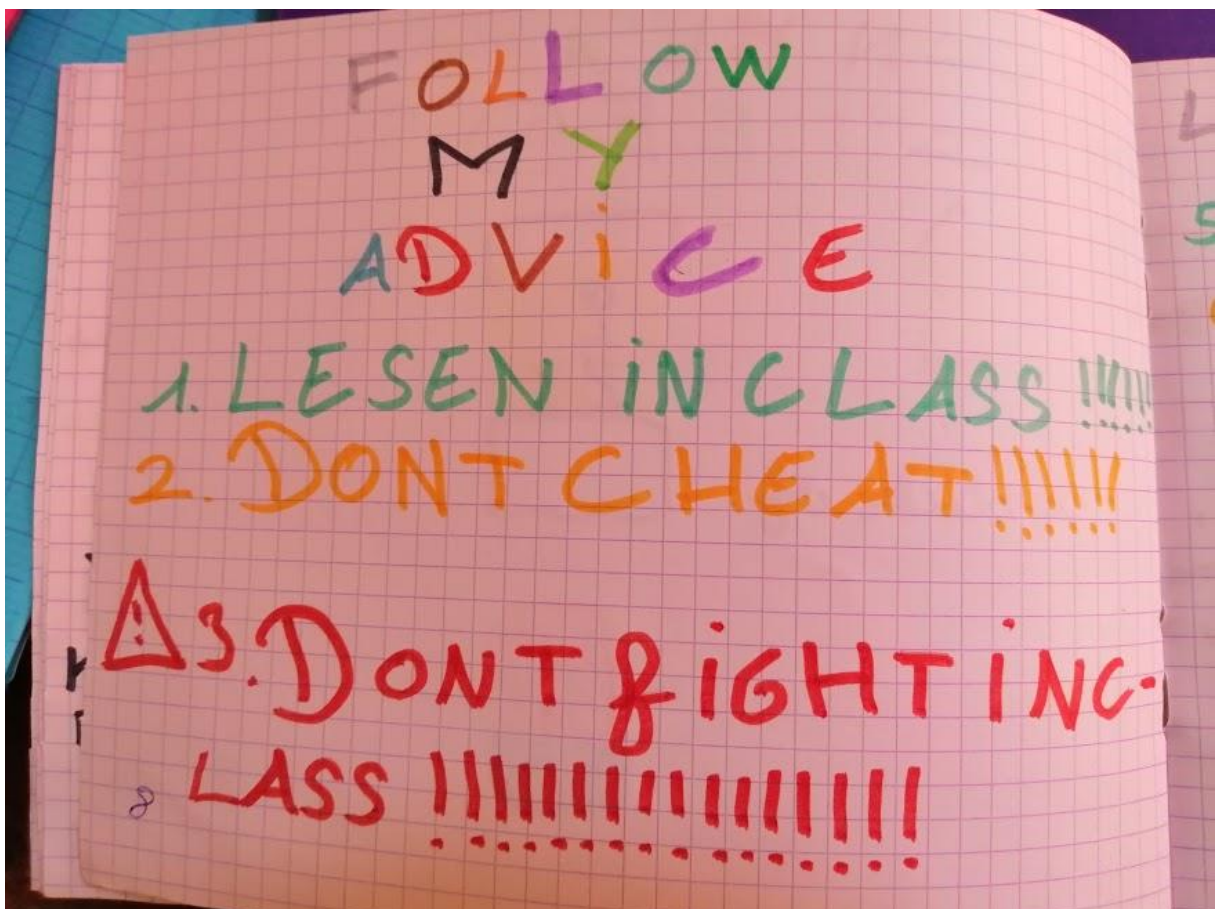 FOLLOW
MY
ADViCE
1. LESEN iN CLASS !!!!!!
2. DONT CHEAT !!!!!!
⚠ 3. DONT fiGHT iN C-
LASS !!!!!!!!!!!!!!!!
8